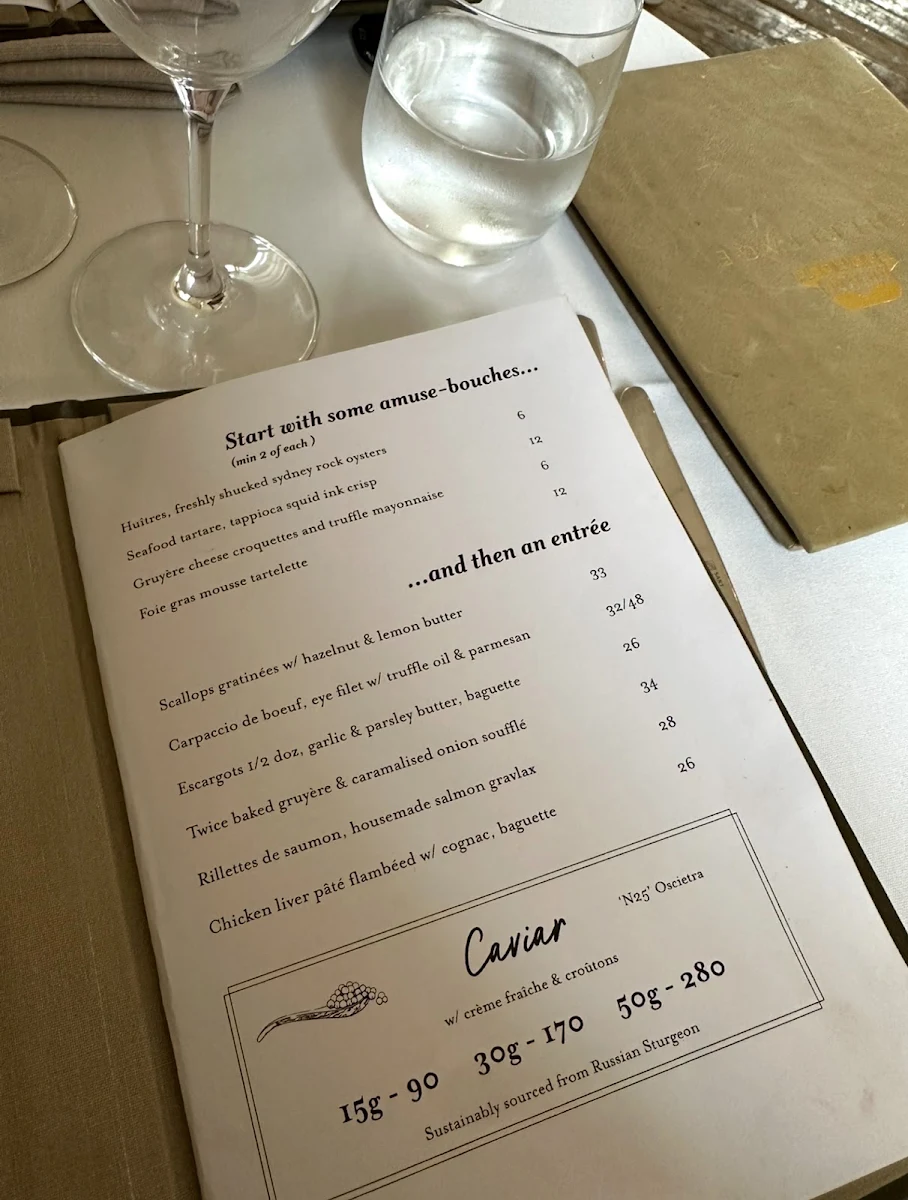 Start with some amuse-bouches...
(min 2 of each )
Huîtres, freshly shucked sydney rock oysters 6
Seafood tartare, tappioca squid ink crisp 12
Gruyère cheese croquettes and truffle mayonnaise 6
Foie gras mousse tartelette 12
...and then an entrée
Scallops gratinées w/ hazelnut & lemon butter 33
Carpaccio de boeuf, eye filet w/ truffle oil & parmesan 32/48
Escargots 1/2 doz, garlic & parsley butter, baguette 26
Twice baked gruyère & caramalised onion soufflé 34
Rillettes de saumon, housemade salmon gravlax 28
Chicken liver pâté flambéed w/ cognac, baguette 26
Caviar 'N25' Oscietra
w/ crème fraîche & croûtons
15g - 90 30g - 170 50g - 280
Sustainably sourced from Russian Sturgeon